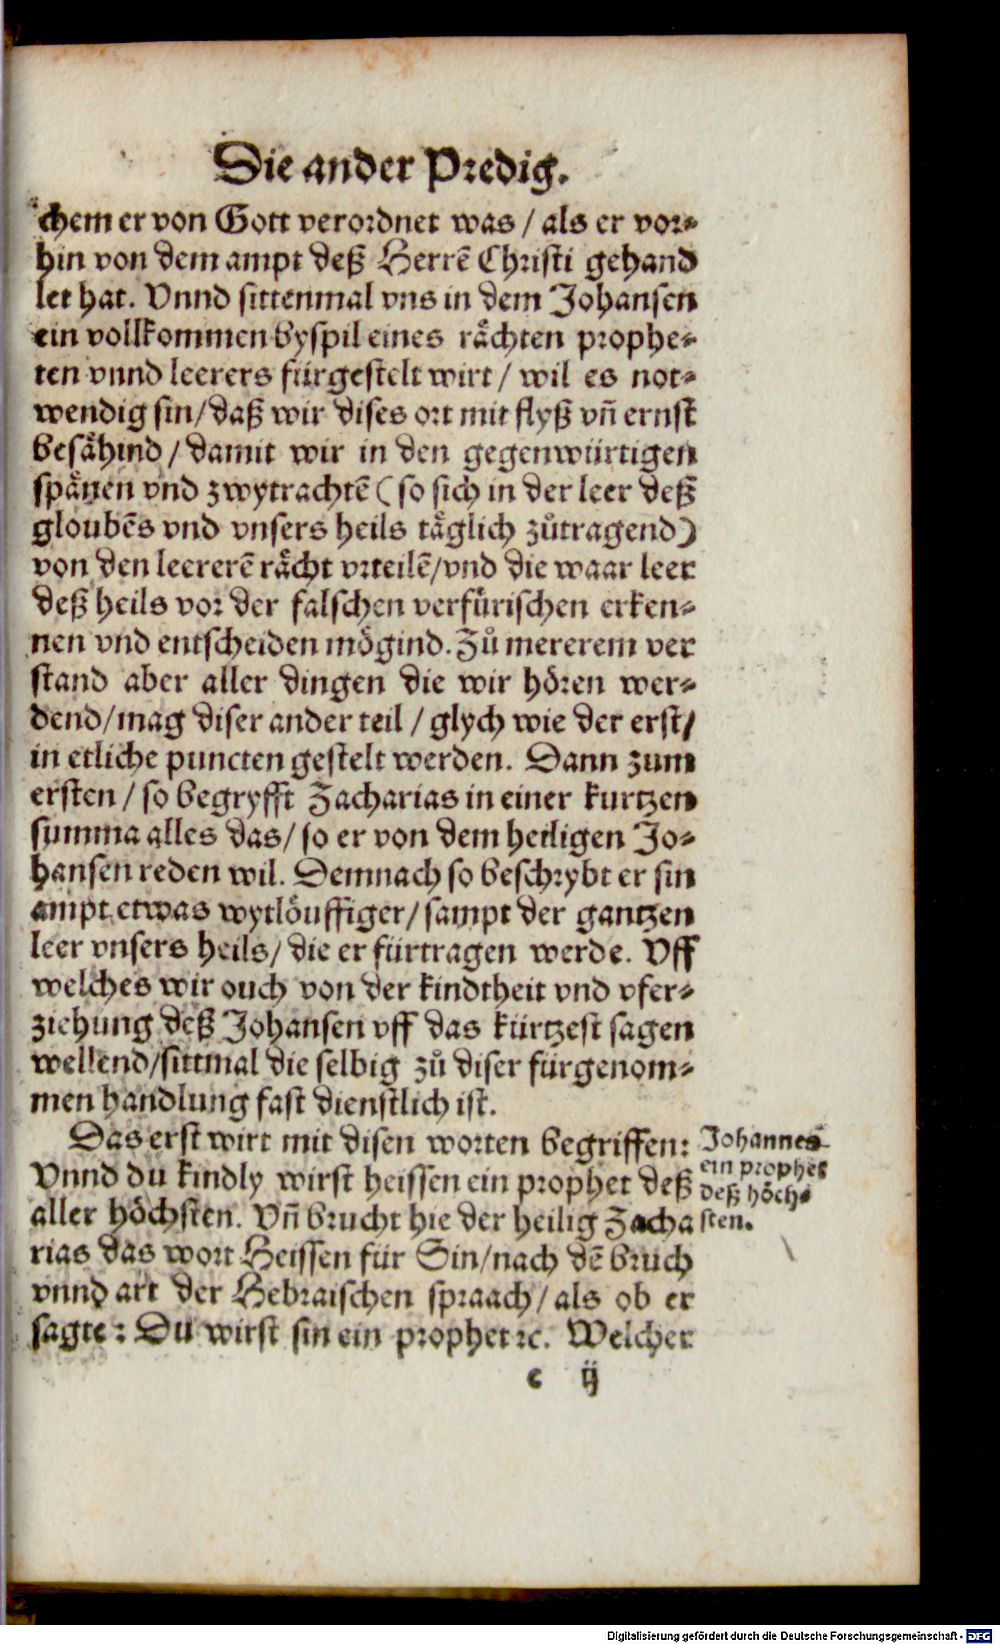 Die ander Predig.
chem er von Gott verordnet was / als er vor⸗
hin von dem ampt deß Herrē Christi gehand
let hat. Vnnd sittenmal vns in dem Johansen
ein vollkommen byspil eines rächten prophe⸗
ten vnnd leerers fürgestelt wirt / wil es not⸗
wendig sin / daß wir dises ort mit flyß vn̄ ernst
besähind / damit wir in den gegenwürtigen
spänen vnd zwytrachtē ( so sich in der leer deß
gloubēs vnd vnsers heils täglich zůtragend )
von den leererē rächt vrteilē / vnd die waar leer
deß heils vor der falschen verfürischen erken⸗
nen vnd entscheiden mögind. Zů mererem ver
stand aber aller dingen die wir hören wer⸗
dend / mag diser ander teil / glych wie der erst /
in etliche puncten gestelt werden. Dann zum
ersten / so begryfft Zacharias in einer kurtzen
summa alles das / so er von dem heiligen Jo⸗
hansen reden wil. Demnach so beschrybt er sin
ampt etwas wytlöuffiger / sampt der gantzen
leer vnsers heils / die er fürtragen werde. Vff
welches wir ouch von der kindtheit vnd vfer⸗
ziehung deß Johansen vff das kürtzest sagen
wellend / sittmal die selbig zů diser fürgenom⸗
men handlung fast dienstlich ist.
Das erst wirt mit disen worten begriffen:
Vnnd du kindly wirst heissen ein prophet deß
aller höchsten. Vn̄ brucht hie der heilig Zacha
rias das wort Heissen für Sin / nach dē bruch
vnnd art der Hebraischen spraach / als ob er
sagte: Du wirst sin ein prophet ꝛc. Welcher
c ij
Johannes
ein prophet
deß höch⸗
sten.
Digitalisierung gefördert durch die Deutsche Forschungsgemeinschaft - DFG